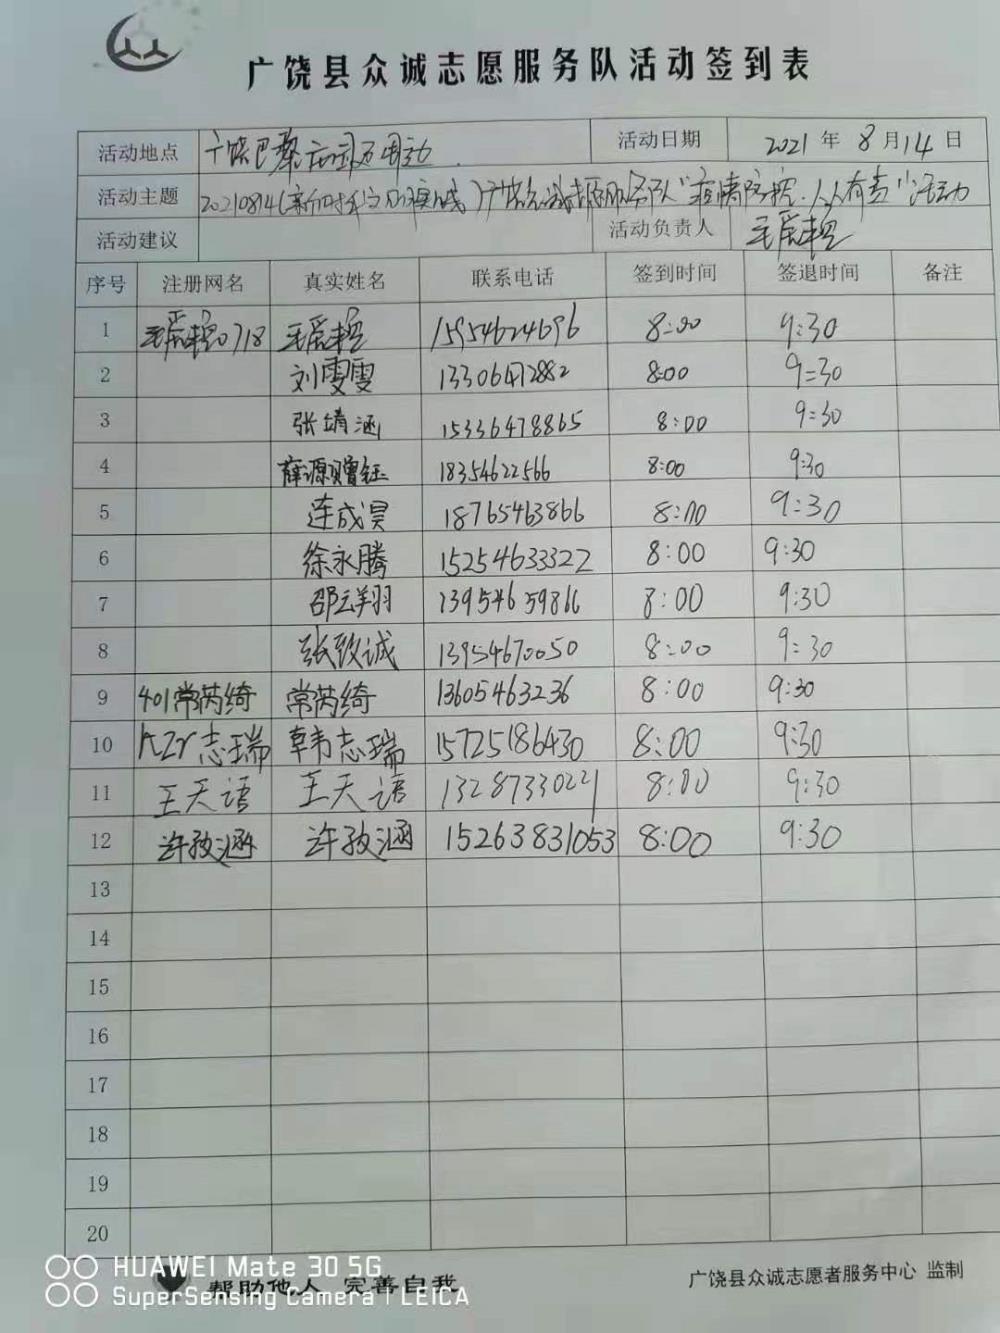 广饶县众诚志愿服务队活动签到表
活动地点 广饶巴黎 活动日期 2021年8月14日
活动主题 20210814(新时代文明实践)广饶众诚志愿服务队"疫情防控,人人有责"活动
活动建议 活动负责人
序号 注册网名 真实姓名 联系电话 签到时间 签退时间 备注
1 0718 15954624696 8:00 9:30
2 刘雯雯 13306472882 8:00 9:30
3 张靖涵 15336478865 8:00 9:30
4 薛源赠钰 18354622566 8:00 9:30
5 连成昊 18765463866 8:00 9:30
6 徐永腾 15254633322 8:00 9:30
7 邵云翔 13954659866 8:00 9:30
8 张致诚 13954670050 8:00 9:30
9 401常芮绮 常芮绮 13605463236 8:00 9:30
10 hzr志瑞 韩志瑞 15725186430 8:00 9:30
11 王天语 王天语 13287330221 8:00 9:30
12 许孜涵 许孜涵 15263831053 8:00 9:30
13
14
15
16
17
18
19
20
帮助他人 完善自我 广饶县众诚志愿者服务中心 监制
HUAWEI Mate 30 5G
SuperSensing Camera | LEICA